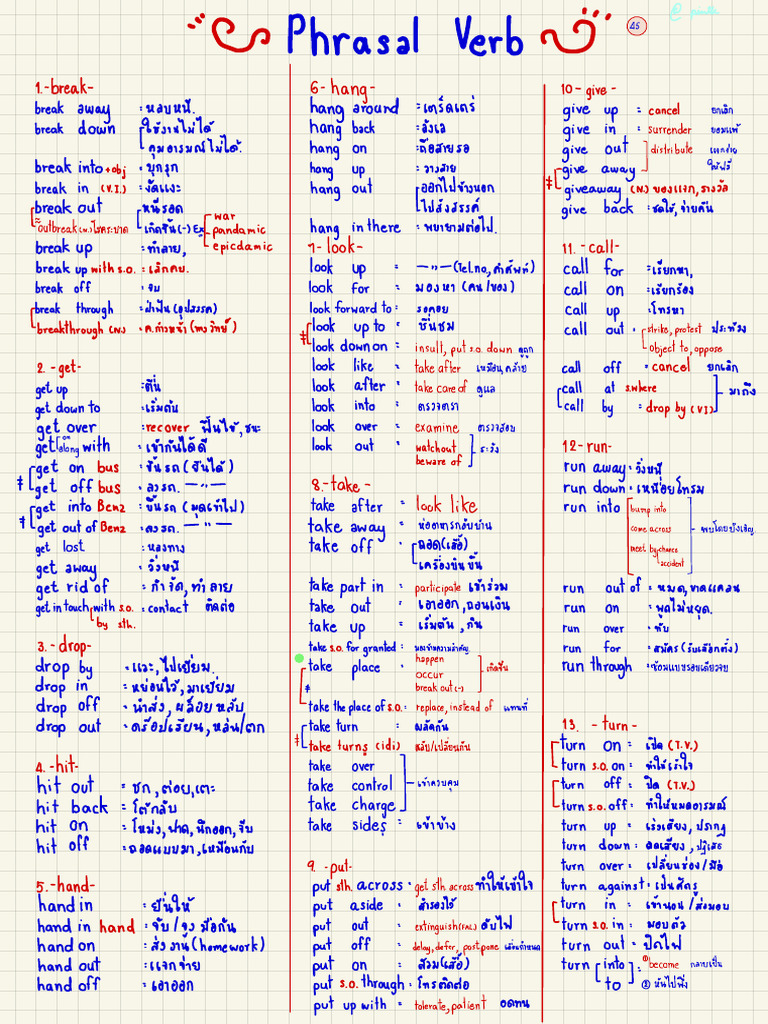 Phrasal Verb
45
1.-break-
break away : หลบหนี.
break down ใช้งานไม่ได้
คุมอารมณ์ไม่ได้.
break into +obj : บุกรุก
break in (V.I.) : งัดแงะ
break out หนีรอด
≈ outbreak (n.) โรคระบาด เกิดขึ้น (-) Ex war
pandamic
epicdamic
break up : ทำลาย,
break up with s.o. : เลิกคบ.
break off : จบ
break through : ฝ่าฟัน (อุปสรรค)
breakthrough (n.) : ค.ก้าวหน้า (ทางวิทย์)
2. -get-
get up : ตื่น
get down to : เริ่มต้น
get over : recover ฟื้นไข้, ชนะ
get on along with : เข้ากันได้ดี
get on bus : ขึ้นรถ (ยืนได้)
≠ get off bus : ลงรถ. —"—
get into Benz : ขึ้นรถ (มุดเข้าไป)
≠ get out of Benz : ลงรถ. —"—
get lost : หลงทาง
get away : วิ่งหนี
get rid of : กำจัด, ทำลาย
get in touch with s.o. : contact ติดต่อ
by sth.
3. -drop-
drop by : แวะ, ไปเยี่ยม.
drop in : หย่อนไว้, มาเยี่ยม
drop off : นำส่ง, ผล็อยหลับ
drop out : ดร็อปเรียน, หล่น/ตก
4. -hit-
hit out = ชก, ต่อย, เตะ
hit back = โต้กลับ
hit on = โหม่ง, ฟาด, นึกออก, จีบ
hit off = ถอดแบบมา, เหมือนกับ
5.-hand-
hand in : ยื่นให้
hand in hand : จับ/จูงมือกัน
hand on : สั่งงาน (homework)
hand out : แจกจ่าย
hand off : เอาออก
6 - hang-
hang around = เตร็ดเตร่
hang back = ลังเล
hang on = ถือสายรอ
hang up = วางสาย
hang out ออกไปข้างนอก
ไปสังสรรค์
hang in there = พยายามต่อไป.
7- look-
look up = —"— (Tel.no, คำศัพท์)
look for = มองหา (คน/ของ)
look forward to : รอคอย
look up to = ชื่นชม
≠ look down on = insult, put s.o. down ดูถูก
look like = take after เหมือน, คล้าย
look after = take care of ดูแล
look into = ตรวจตรา
look over = examine ตรวจสอบ
look out = watchout ระวัง
beware of
8.-take -
take after = look like
take away = ห่ออาหารกลับบ้าน
take off = ถอด (เสื้อ)
เครื่องบินขึ้น
take part in = participate เข้าร่วม
take out = เอาออก, ถอนเงิน
take up = เริ่มต้น, กิน
take s.o. for granted :
take place = happen
occur เกิดขึ้น
break out (-)
≠
take the place of s.o. : replace, instead of แทนที่
take turn = ผลัดกัน
≠ take turns (idi) = สลับ/เปลี่ยนกัน
take over
take control เข้าควบคุม
take charge
take sides = เข้าข้าง
9. -put-
put sth. across : get sth across ทำให้เข้าใจ
put aside = สำรองไว้
put out = extinguish ดับไฟ
put off = delay, defer, postpone เลื่อนกำหนด
put on = สวม (เสื้อ)
put s.o. through : โทรติดต่อ
put up with = tolerate, patient อดทน
10 - give -
give up = cancel ยกเลิก
give in = surrender ยอมแพ้
give out distribute แจกจ่าย
give away ให้ฟรี
≠ giveaway (n.) ของแจก, รางวัล
give back = ชดใช้, จ่ายคืน
11. -call-
call for = เรียกหา,
call on = เรียกร้อง
call up = โทรหา
call out = strike, protest ประท้วง
object to, oppose
call off = cancel ยกเลิก
call at s.where มาถึง
call by = drop by (VI)
12 -run-
run away = วิ่งหนี
run down = เหนื่อยโทรม
run into bump into
come across พบโดยบังเอิญ
meet by chance
accident
run out of = หมด, ขาดแคลน
run on = พูดไม่หยุด.
run over = ทับ
run for = สมัคร (รับเลือกตั้ง)
run through = ซ้อมแบบรอบเดียวจบ
13. -turn-
turn on = เปิด (T.V.)
turn s.o. on = ทำให้เร้าใจ
turn off = ปิด (T.V.)
turn s.o. off = ทำให้หมดอารมณ์
turn up = เร่งเสียง, ปรากฏ
turn down = ลดเสียง, ปฏิเสธ
turn over = เปลี่ยนช่อง/มือ
turn against = เป็นศัตรู
turn in = เข้านอน/ส่งมอบ
turn s.o. in = มอบตัว
turn out = ปิดไฟ
turn into = ① become กลายเป็น
to ② หันไปพึ่ง